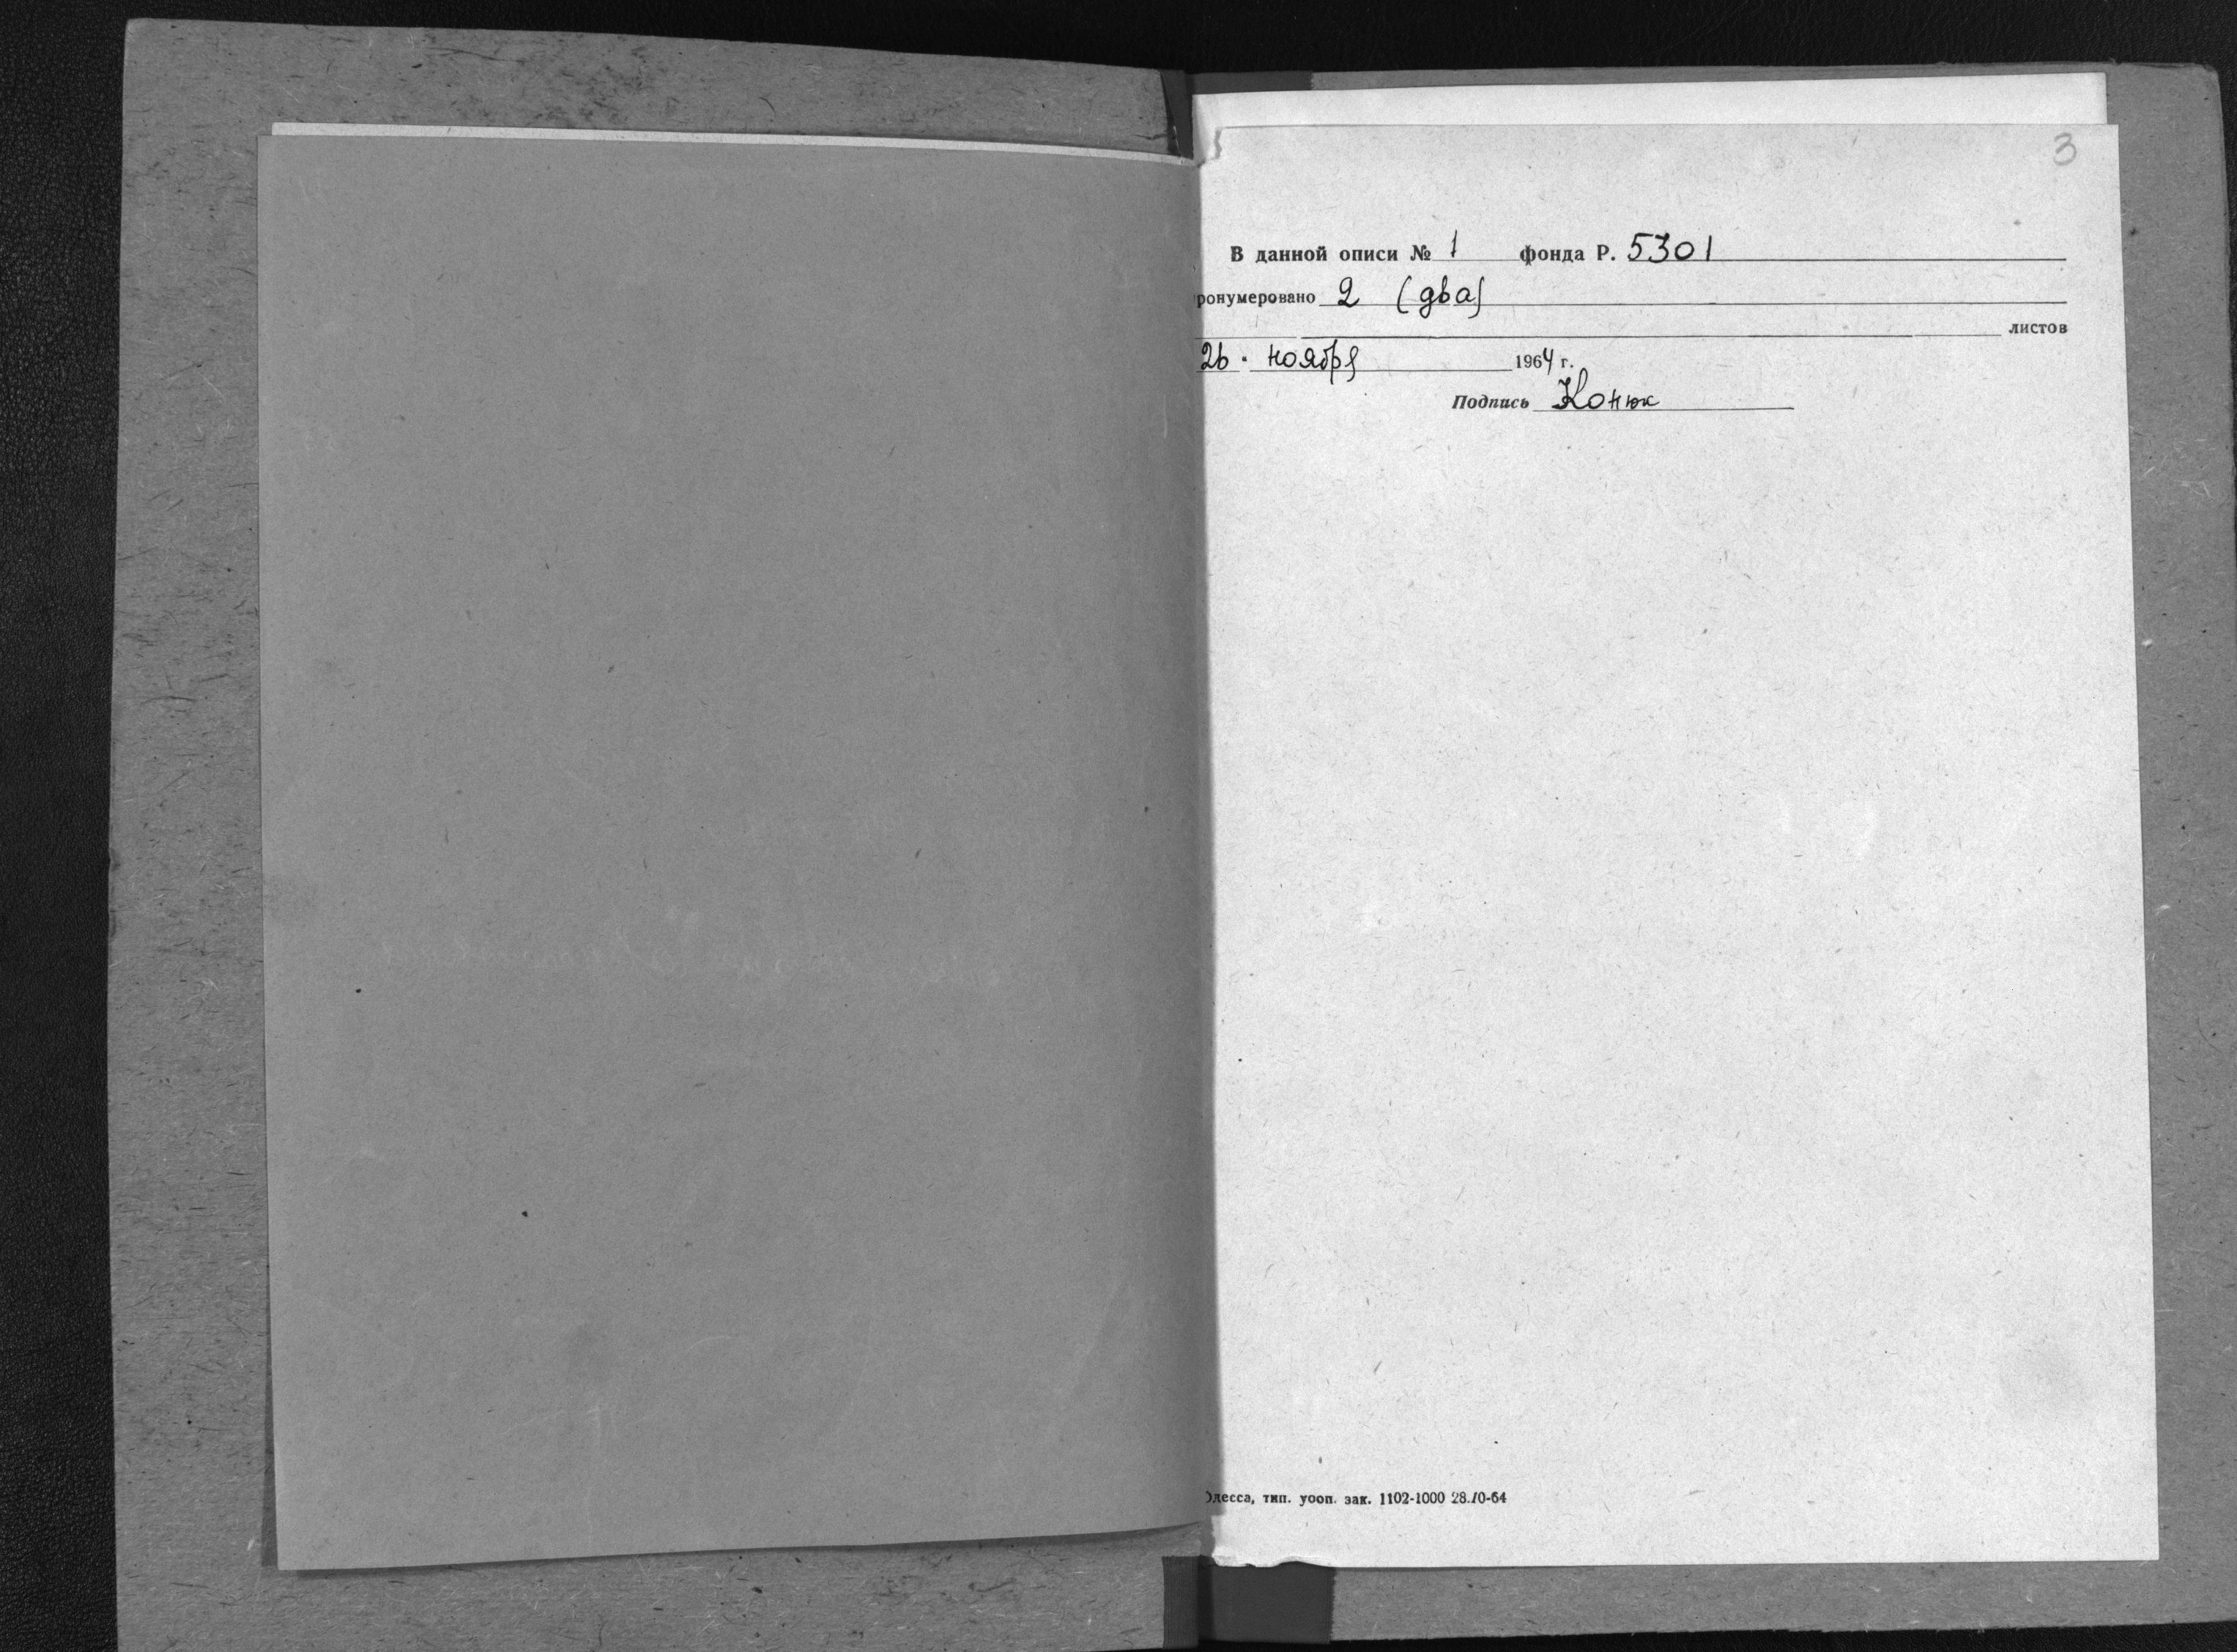 3
В данной описи № 1 фонда Р. 5301
ронумеровано 2 (два)
листов
26 " ноября 1964 г.
Подпись Конюк
Одесса, тип. уооп. зак. 1102-1000 28.10-64